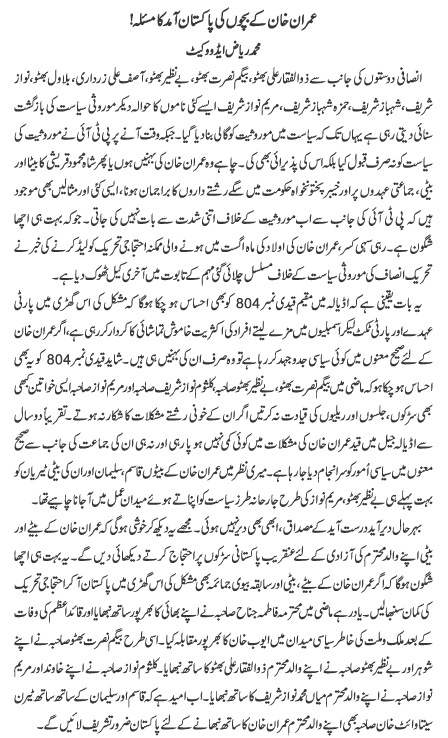 عمران خان کے بچوں کی پاکستان آمد کا مسئلہ!
محمد ریاض ایڈووکیٹ
انصافی دوستوں کی جانب سے ذوالفقار علی بھٹو، بیگم نصرت بھٹو، بے نظیر بھٹو، آصف علی زرداری، بلاول بھٹو، نواز
شریف، شہباز شریف، حمزہ شہباز شریف، مریم نواز شریف ایسے کئی ناموں کا حوالہ دیکر موروثی سیاست کی بازگشت
سنائی دیتی رہی ہے یہاں تک کہ سیاست میں موروثیت کو گالی بنا دیا گیا۔ جبکہ وقت آنے پر پی ٹی آئی نے موروثیت کی
نہ صرف قبول کیا بلکہ اس کی پذیرائی بھی کی۔ چاہے وہ عمران خان کی بہنیں ہوں یا پھر شاہ محمود قریشی کا بیٹا اور
بیٹی، جماعتی عہدوں پر اور خیبر پختونخواہ حکومت میں سگے رشتے داروں کا براجمان ہونا، ایسی کئی اور مثالیں بھی موجود
ہیں کہ پی ٹی آئی کی جانب سے اب موروثیت کے خلاف اتنی شدت سے بات نہیں کی جاتی۔ جو کہ بہت ہی اچھا
شگون ہے۔ رہی سہی کسر، عمران خان کی اولاد کی ماہ اگست میں ہونے والی ممکنہ احتجاجی تحریک کو لیڈ کرنے کی خبر نے
تحریک انصاف کی موروثی سیاست کے خلاف مسلسل چلائی گئی مہم کے تابوت میں آخری کیل ٹھوک دیا ہے۔
یہ بات یقینی ہے کہ اڈیالہ میں مقیم قیدی نمبر 804 کو بھی احساس ہو چکا ہوگا کہ مشکل کی اس گھڑی میں پارٹی
عہدے اور پارٹی ٹکٹ لیکر اسمبلیوں میں مزے لیتے افراد کی اکثریت خاموش تماشائی کا کردار کر رہی ہے، اگر عمران خان
کے لئے صحیح معنوں میں کوئی سیاسی جدوجہد کر رہا ہے تو وہ صرف ان کی بہنیں ہی ہیں۔ شاید قیدی نمبر 804 کو یہ بھی
احساس ہو چکا ہو کہ ماضی میں بیگم نصرت بھٹو، بے نظیر بھٹو صاحبہ، کلثوم نواز شریف صاحبہ اور مریم نواز صاحبہ ایسی خواتین بھی
سڑکوں، جلسوں اور ریلیوں کی قیادت نہ کرتیں اگر ان کے خونی رشتے مشکلات کا شکار نہ ہوتے۔ تقریباً دو سال
سے اڈیالہ جیل میں قید عمران خان کی مشکلات میں کوئی کمی نہیں ہو پا رہی اور نہ ہی ان کی جماعت کی جانب سے صحیح
معنوں میں سیاسی اُمور کو سرانجام دیا جا رہا ہے۔ میری نظر میں عمران خان کے بیٹوں قاسم، سلیمان اور ان کی بیٹی ٹیریان کو
بہت پہلے ہی بے نظیر بھٹو، مریم نواز کی طرح جارحانہ طرز سیاست کو اپناتے ہوئے میدان عمل میں آ جانا چاہیے تھا۔
بہرحال دیر آید درست آید کے مصداق، ابھی بھی دیر نہیں ہوئی۔ مجھے یہ دیکھ کر خوشی ہوگی کہ عمران خان کے بیٹے اور
بیٹی اپنے والد محترم کی آزادی کے لئے عنقریب پاکستانی سڑکوں پر احتجاج کرتے دیکھائی دیں گے۔ یہ بہت ہی اچھا
شگون ہوگا کہ اگر عمران خان کے بیٹے، بیٹی اور سابقہ بیوی جمائمہ بھی مشکل کی اس گھڑی میں پاکستان آ کر احتجاجی تحریک
کی کمان سنبھالیں۔ یاد رہے ماضی میں محترمہ فاطمہ جناح صاحبہ نے اپنے بھائی کا بھرپور ساتھ نبھایا اور قائد اعظم کی وفات
کے بعد ملک و ملت کی خاطر سیاسی میدان میں ایوب خان کا بھرپور مقابلہ کیا۔ اسی طرح بیگم نصرت بھٹو صاحبہ نے اپنے
شوہر اور بے نظیر بھٹو صاحبہ نے اپنے والد محترم ذوالفقار علی بھٹو کا ساتھ نبھایا۔ کلثوم نواز صاحبہ نے اپنے خاوند اور مریم
نواز صاحبہ نے اپنے والد محترم میاں محمد نواز شریف کا ساتھ نبھایا۔ اب امید ہے کہ قاسم اور سلیمان کے ساتھ ساتھ ٹیرن
سیتا وائٹ خان صاحبہ بھی اپنے والد محترم عمران خان کے ساتھ نبھانے کے لئے پاکستان ضرور تشریف لائیں گے۔